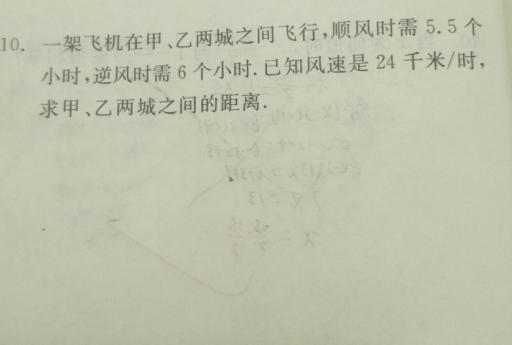 10. 一架飞机在甲、乙两城之间飞行,顺风时需 5.5 个
小时,逆风时需 6 个小时.已知风速是 24 千米/时,
求甲、乙两城之间的距离.